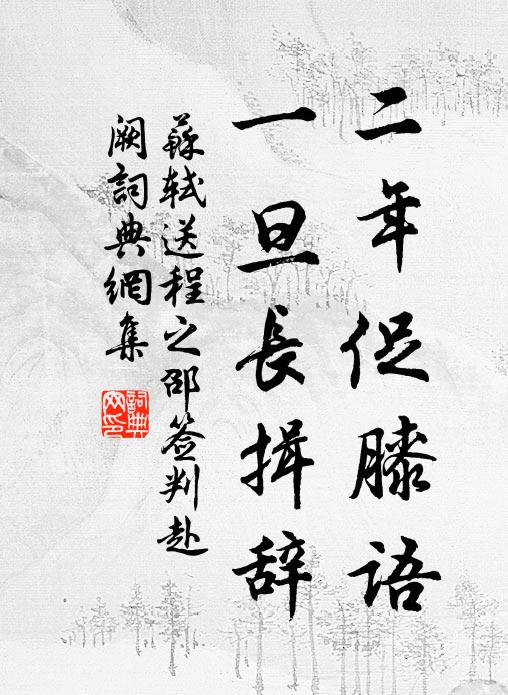 二年促膝語
一旦長揖辞
蘇軾送程之邵簽判赴
闕詞典網集
詞典
网印